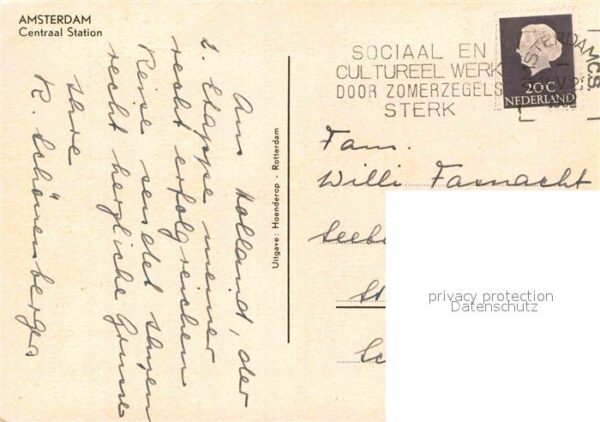 AMSTERDAM
Centraal Station
Aus Holland, der
2. Etappe meiner
recht erfolgreichen
Reise sendet Ihnen
recht herzliche Grüsse
Ihre
R. Schönenberger
Uitgave: Hoenderop - Rotterdam
SOCIAAL EN
CULTUREEL WERK
DOOR ZOMERZEGELS
STERK
AMSTERDAM C.S.
20C
NEDERLAND
Fam.
Willi Fasnacht
privacy protection
Datenschutz